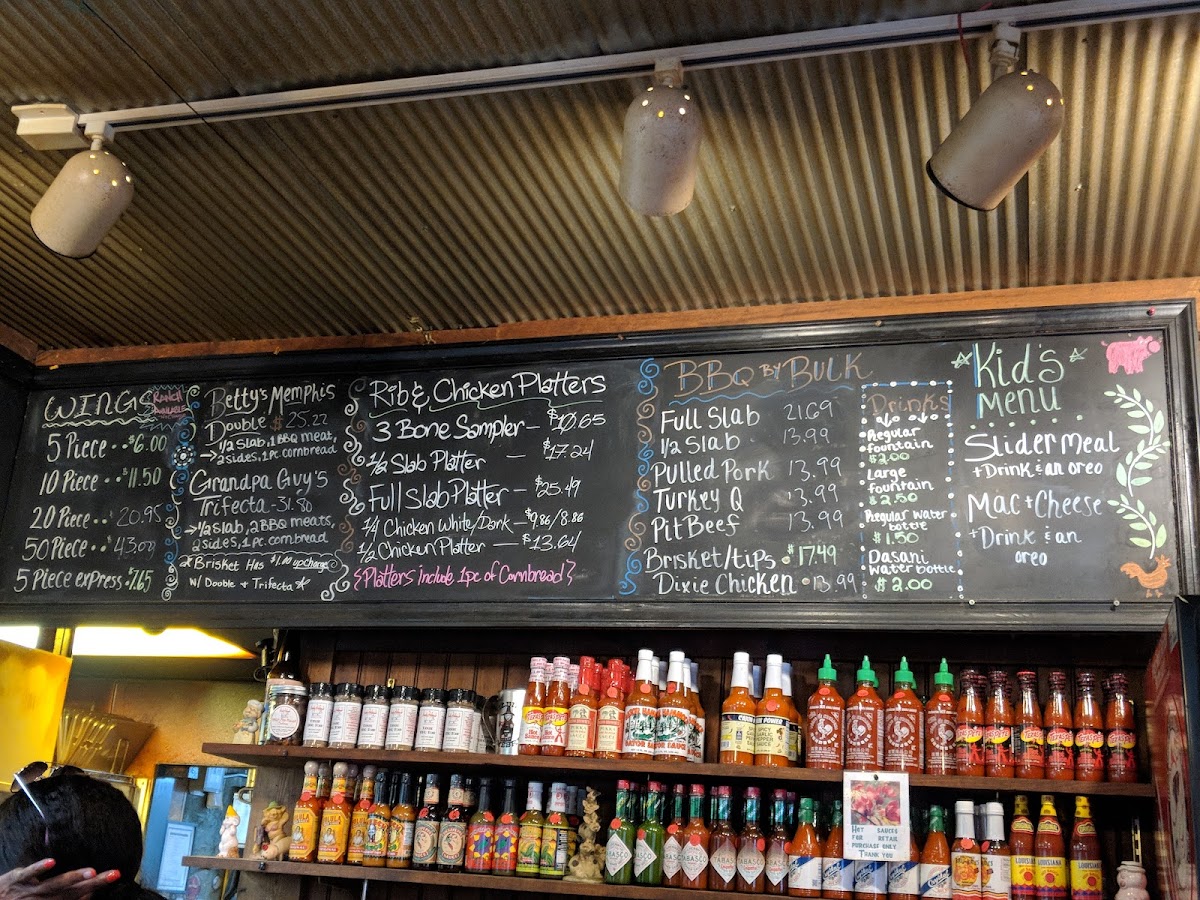 WINGS
RANCH AVAILABLE
5 Piece •• $6.00
10 Piece •• $11.50
20 Piece •• 20.95
50 Piece •• 43.00
5 Piece express • $7.65
Betty's Memphis
Double $25.22
→ 1/2 Slab, 1 BBQ meat,
2 sides, 1 pc cornbread
Grandpa Guy's
Trifecta - 31.80
→ 1/2 slab, 2 BBQ meats,
2 sides, 1 pc. cornbread
* Brisket Has $1.00 upcharge
w/ Double & Trifecta *
Rib & Chicken Platters
3 Bone Sampler — $10.65
1/2 Slab Platter — $17.24
Full Slab Platter — $25.49
1/4 Chicken White/Dark — $9.86/8.86
1/2 Chicken Platter — $13.64
{Platters include 1pc of Cornbread}
BBQ BY BULK
Full Slab 21.69
1/2 Slab 13.99
Pulled Pork 13.99
Turkey Q 13.99
Pit Beef 13.99
Brisket/tips • $17.49
Dixie Chicken • 13.99
Drinks
Regular
fountain
$2.00
Large
fountain
$2.50
Regular water
bottle
$1.50
Dasani
water bottle
$2.00
Kid's
MENU
Slider meal
+ Drink & an oreo
Mac + Cheese
+ Drink & an
oreo
CAJUN POWER
TABASCO
TABASCO
TABASCO
TABASCO
TABASCO
TABASCO
Crystal
LOUISIANA
LOUISIANA
HOT SAUCES
FOR RETAIL
PURCHASE ONLY
THANK YOU